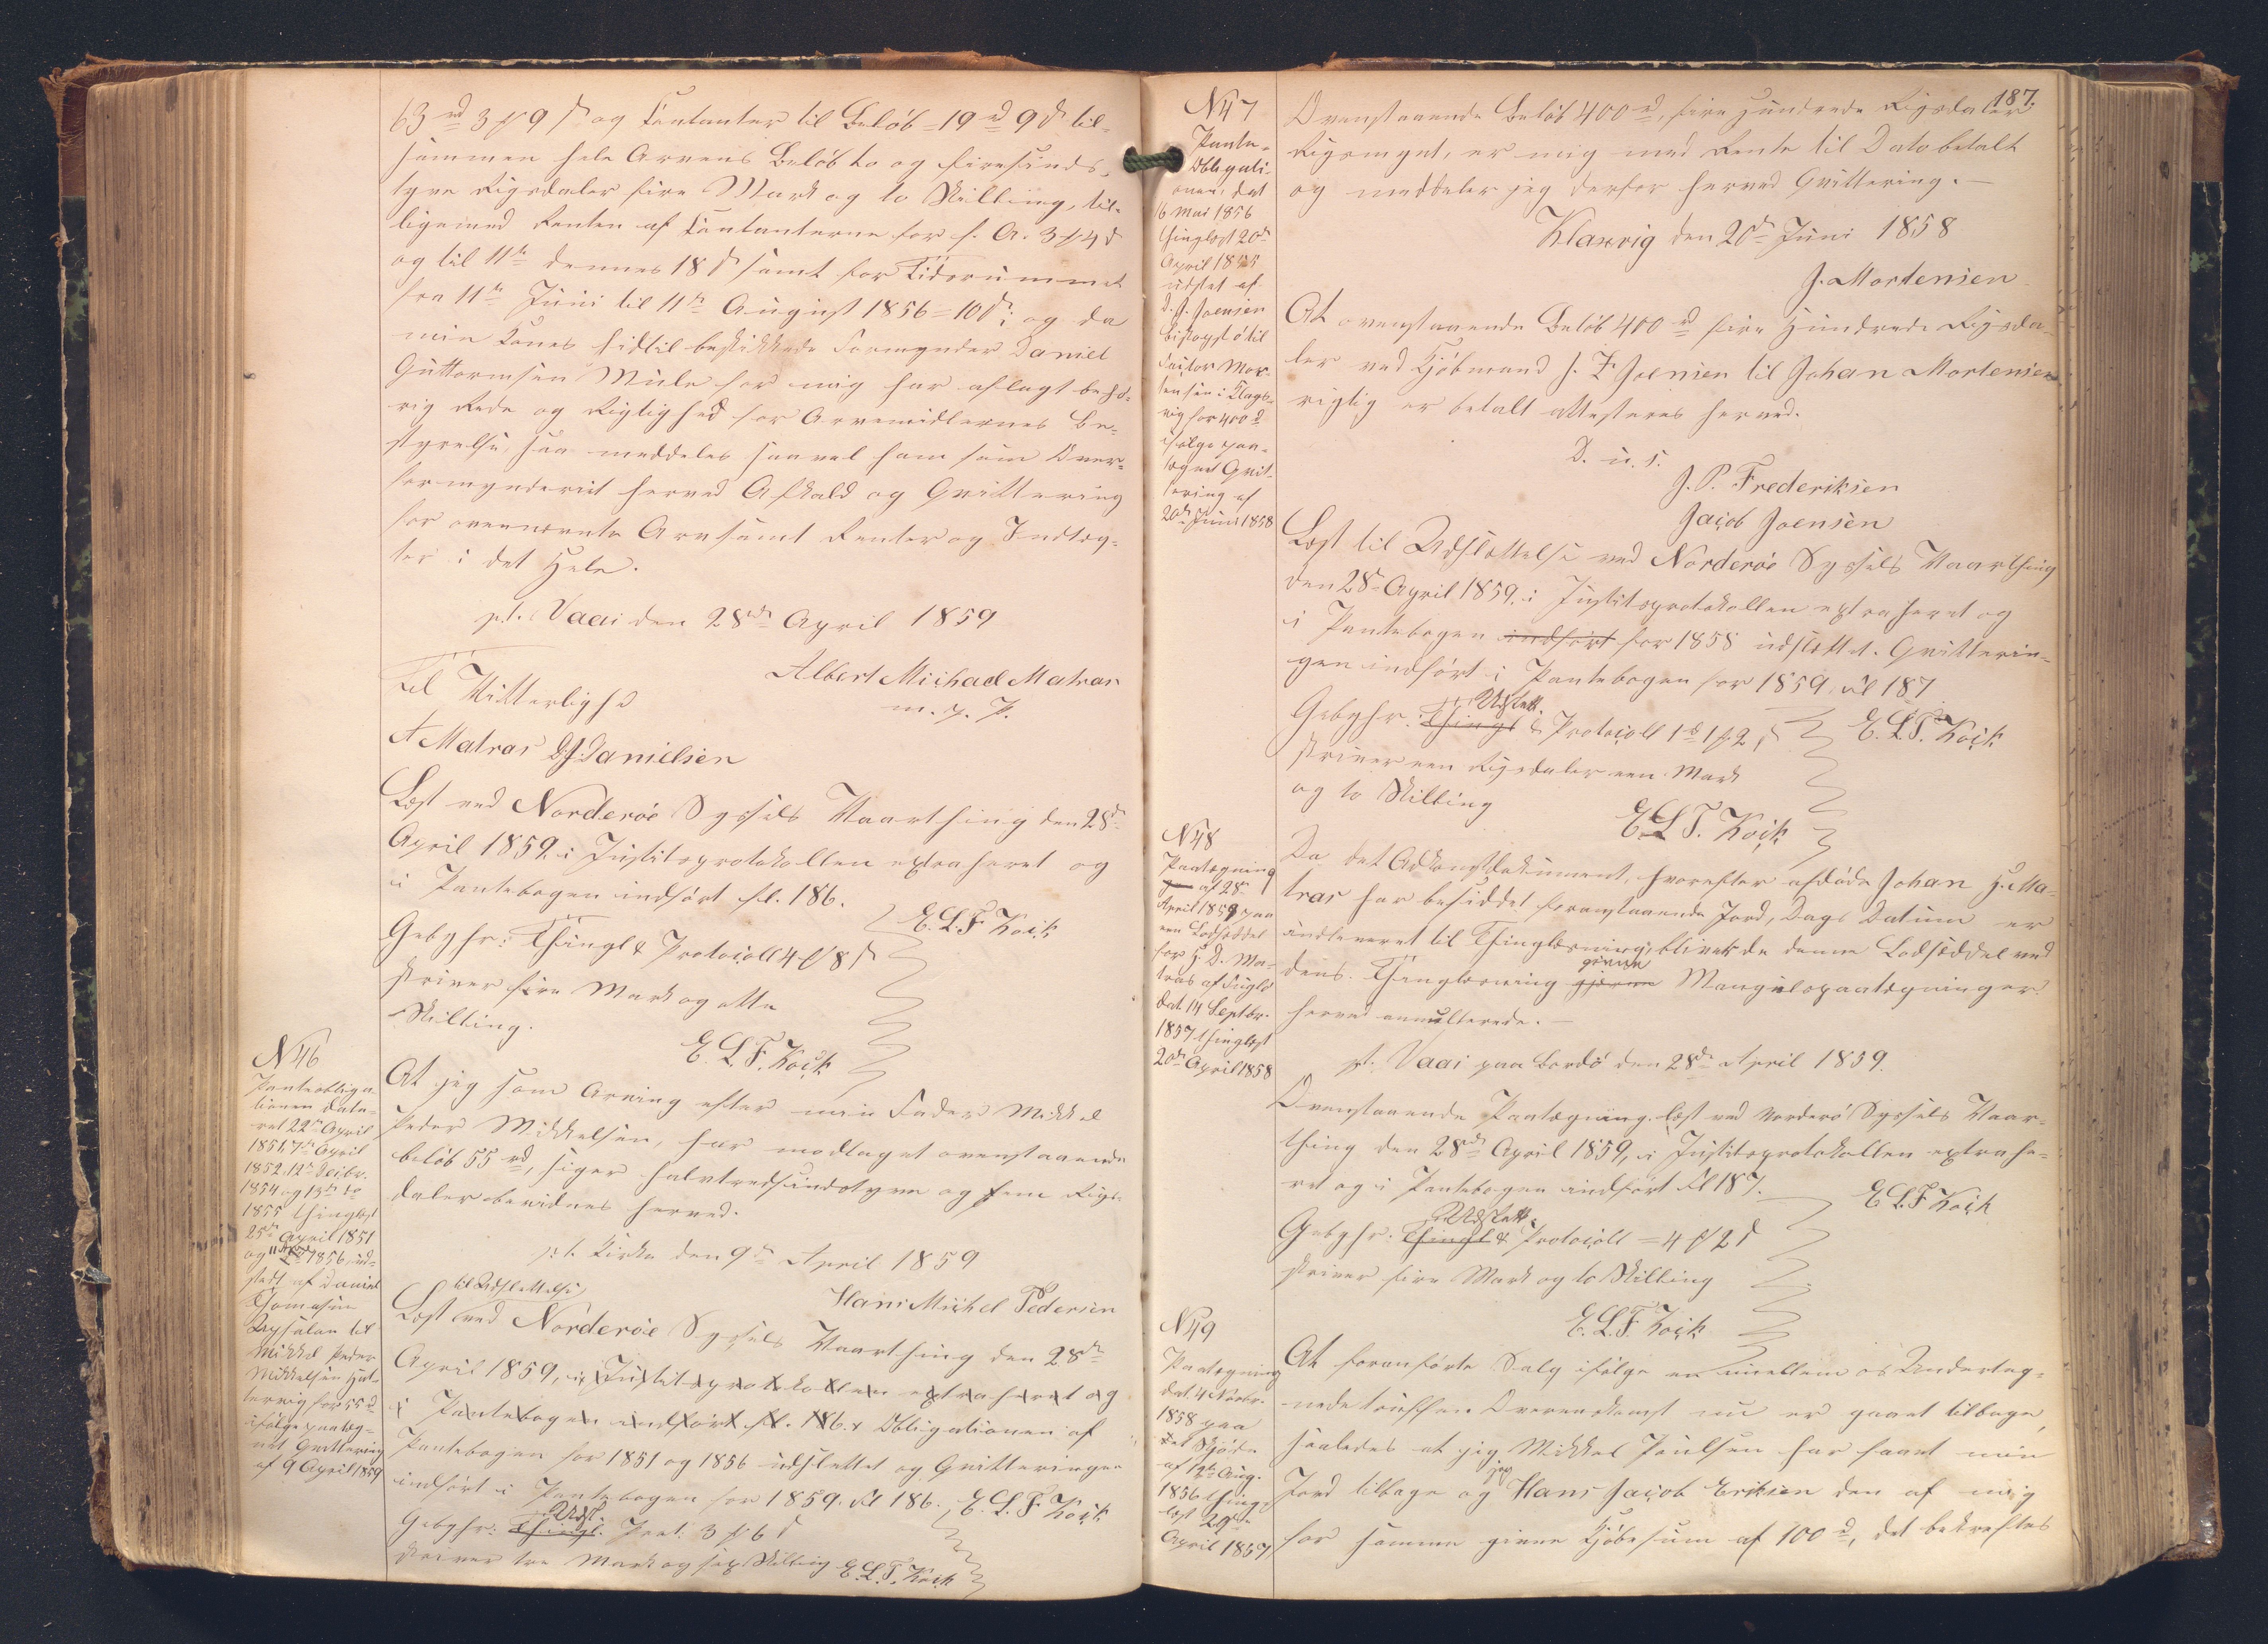 63 rd 3 ₰ 9 s og Contanter til Beløb = 19 rd 9 s til-
sammen hele Arvens Beløb to og firesinds-
tyve Rigsdaler fire Mark og to Skilling, til-
ligemed Renten af Contanterne for f. A. 3 ₰ 4 s
og til 11te dennes 18 s samt for Tidsrummet
fra 11te Juni til 11te August 1856 = 10 s; og da
min Kones hidtil beskikkede Formynder Daniel
Guttormsen Mule for mig har aflagt behø-
rig Rede og Rigtighed for Arvemidlernes Be-
styrelse, saa meddeles saavel ham som Over-
formynderiet herved Afkald og Qvittering
for ovennævnte Arv samt Renter og Indtæg-
ter i det Hele.
pt. Vaai den 28de April 1859
Albert Michael Matras
m. f. P.
Til Vitterlighed
A Matras D J Danielsen
Læst ved Norderøe Syssels Vaarthing den 28de
April 1859, i Justitsprotokollen extraheret og
i Pantebogen indført fol. 186.
E. L. F. Koch
Gebyhr: Thingl & Protocoll 4 ₰ 8 s
skriver fire Mark og otte
Skilling.
E. L. F. Koch
N 46
Panteobliga-
tionen date-
ret 22de April
1851, 7de April
1852, 12te Decbr.
1854 og 13de
1855 thinglæst
25de April 1851
og 1856 ud-
stedt af Daniel
Thomasen
til
Mikkel Peder
Mikkelsen Hat-
tervig for 55 rd
ifølge paateg-
net Qvittering
af 9 April 1859
At jeg som Arving efter min Fader Mikkel
Peder Mikkelsen, har modtaget ovenstaaende
beløb 55 rd, siger halvtredsindstyve og fem Rigs-
daler bevidnes herved.
p. t. Kirke den 9de April 1859
Hans Michel Pedersen
til Udslettelse
Læst ved Norderøe Syssels Vaarthing den 28de
April 1859, i Justitsprotokollen extraheret og
i Pantebogen indført fol. 186. Obligationen af
Pantebogen for 1851 og 1856 udslettet og Qvitteringen
indført i Pantebogen for 1859. fol 186. E. L. F. Koch
Udsl.
Gebyhr: Thingl. Prot. 3 ₰ 6 s
skriver tre Mark og sex Skilling E. L. F. Koch
187.
N 47
Pante-
Obligati-
onen, dat
16 Mai 1856
thinglæst 20de
April 1858
udstet af
D. J. Joensen
til
Factor Mor-
tensen i Klags-
vig for 400 rd
ifølge paa-
tegnet Qvit-
tering af
20de Juni 1858
Ovenstaaende Beløb 400 rd, fire Hundrede Rigsdaler
Rigsmynt, er mig med Rente til Dato betalt
og meddeler jeg derfor herved Qvittering. —
Klaxvig den 20de Juni 1858
J. Mortensen
At ovenstaaende Beløb 400 rd fire Hundrede Rigsda-
ler ved Kjøbmand J. F. Joensen til Johan Mortensen
rigtig er betalt attesteres herved.
D. u. s.
J. P. Frederiksen
Jacob Joensen
Læst til Udslettelse ved Norderøe Syssels Vaarthing
den 28de April 1859, i Justitsprotokollen extraheret og
i Pantebogen indført for 1858 udslettet. Qvitterin-
gen indført i Pantebogen for 1859. fol 187
Udslett.
Gebyhr: Thingl & Protocoll 1 rd 1 ₰ 2 s
E. L. F. Koch
skriver een Rigsdaler een Mark
og to Skilling
E. L. F. Koch
N 48
Paategning
af 28de
April 1859 paa
een Lodseddel
for H. D. Ma-
tras af Fuglø
dat 14 Septbr.
1857 thinglæst
20de April 1858
Da det Adkomstdokument, hvorefter afdøde Johan H. Ma-
tras har besiddet foranstaaende Jord, Dags Datum er
indleveret til Thinglæsning, blive de denne Lodseddel ved
givne
dens Thinglæsning gjorne Mangelspaategninger
herved annullerede. —
pt. Vaai paa Bordø den 28de April 1859.
Ovenstaaende Paategning læst ved Norderø Syssels Vaar-
thing den 28de April 1859, i Justitsprotokollen extrahe-
ret og i Pantebogen indført fol 187.
E. L. F. Koch
Udslett.
Gebyhr: Thingl & Protocoll = 4 ₰ 2 s
skriver fire Mark og to Skilling
E. L. F. Koch
N 49
Paategning
dat. 4 Novbr.
1858 paa
det Skjøde
af 19de Aug.
1856 thing-
læst 29de
April 1857
At foranførte Salg ifølge en imellem os Underteg-
nede truffen Overenskomst nu er gaaet tilbage,
saaledes at jeg Mikkel Poulsen har faaet min
jeg
Jord tilbage og Hans Jacob Eriksen den af mig
for samme givne Kjøbesum af 100 rd, det bekræftes